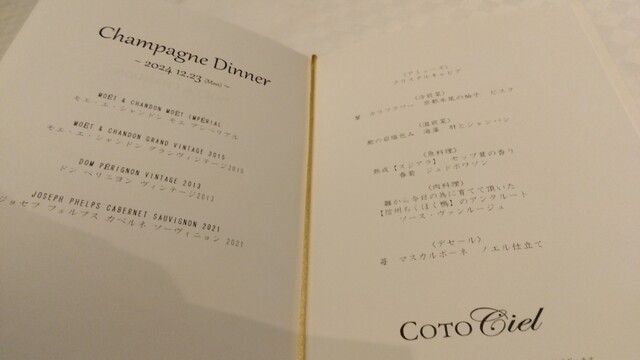 Champagne Dinner
~ 2024 12.23 (Mon) ~
MOËT & CHANDON MOËT IMPÉRIAL
モエ・エ・シャンドン モエ アンペリアル
MOËT & CHANDON GRAND VINTAGE 2015
モエ・エ・シャンドン グランヴィンテージ2015
DOM PÉRIGNON VINTAGE 2013
ドン ペリニヨン ヴィンテージ2013
JOSEPH PHELPS CABERNET SAUVIGNON 2021
ジョセフ フェルプス カベルネ ソーヴィニヨン 2021
《アミューズ》
クリスタルキャビア
《冷前菜》
《温前菜》
《魚料理》
熟成【スジアラ】 セップ茸の香り
春菊 ジュドポワソン
《肉料理》
雛から今日の為に育てて頂いた
【信州たくぼく鴨】のアンクルート
ソース・ヴァンルージュ
《デセール》
苺 マスカルポーネ ノエル仕立て
COTO Ciel